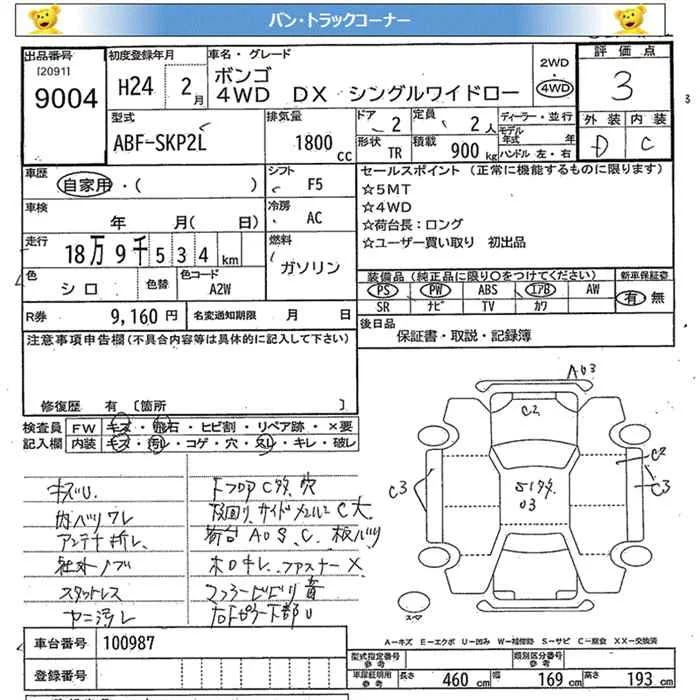 バン・トラックコーナー
出品番号
[2091]
9004
初度登録年月
H24 2月
車名・グレード
ボンゴ
4WD DX シングルワイドロー
2WD
・
4WD
評価点
3
外装 内装
D C
型式
ABF-SKP2L
排気量
1800 cc
ドア 2
定員 2人
形状 TR
積載 900 kg
ディーラー・並行
モデル年式 年
ハンドル 左・右
車歴
自家用・( )
シフト F5
車検
年 月( 日)
冷房 AC
走行
18万9千534 km
燃料
ガソリン
色
シロ
色替
色コード
A2W
R券 9,160 円
名変通知期限 月 日
セールスポイント (正常に機能するものに限ります)
☆5MT
☆4WD
☆荷台長:ロング
☆ユーザー買い取り 初出品
装備品(純正品に限り〇をつけてください)
新車保証書
PS PW ABS エアB AW
SR ナビ TV カワ
有 無
後日品
保証書・取説・記録簿
注意事項申告欄(不具合内容等は具体的に記入して下さい)
修復歴 有〔箇所 〕
検査員記入欄
FW キズ・飛石・ヒビ割・リペア跡・×要
内装 キズ・汚レ・コゲ・穴・スレ・キレ・破レ
キズU.
内ハツワレ
アンテナ折レ、
社外ノブ
スタットレス
ヤニ汚レ
下フロアC多、穴
荷台 A0S、C、板バツ
ホロキレ、ファスナーX
マフラービビリ音
A03
C2
C3
S1多
03
C2
C3
スペア
A−キズ E−エクボ U−凹み W−補修跡 S−サビ C−腐食 XX−交換済
車台番号 100987
登録番号
型式指定番号
参考
類別区分番号
参考
車庫証明用
参考
長さ 460 cm
幅 169 cm
高さ 193 cm
3